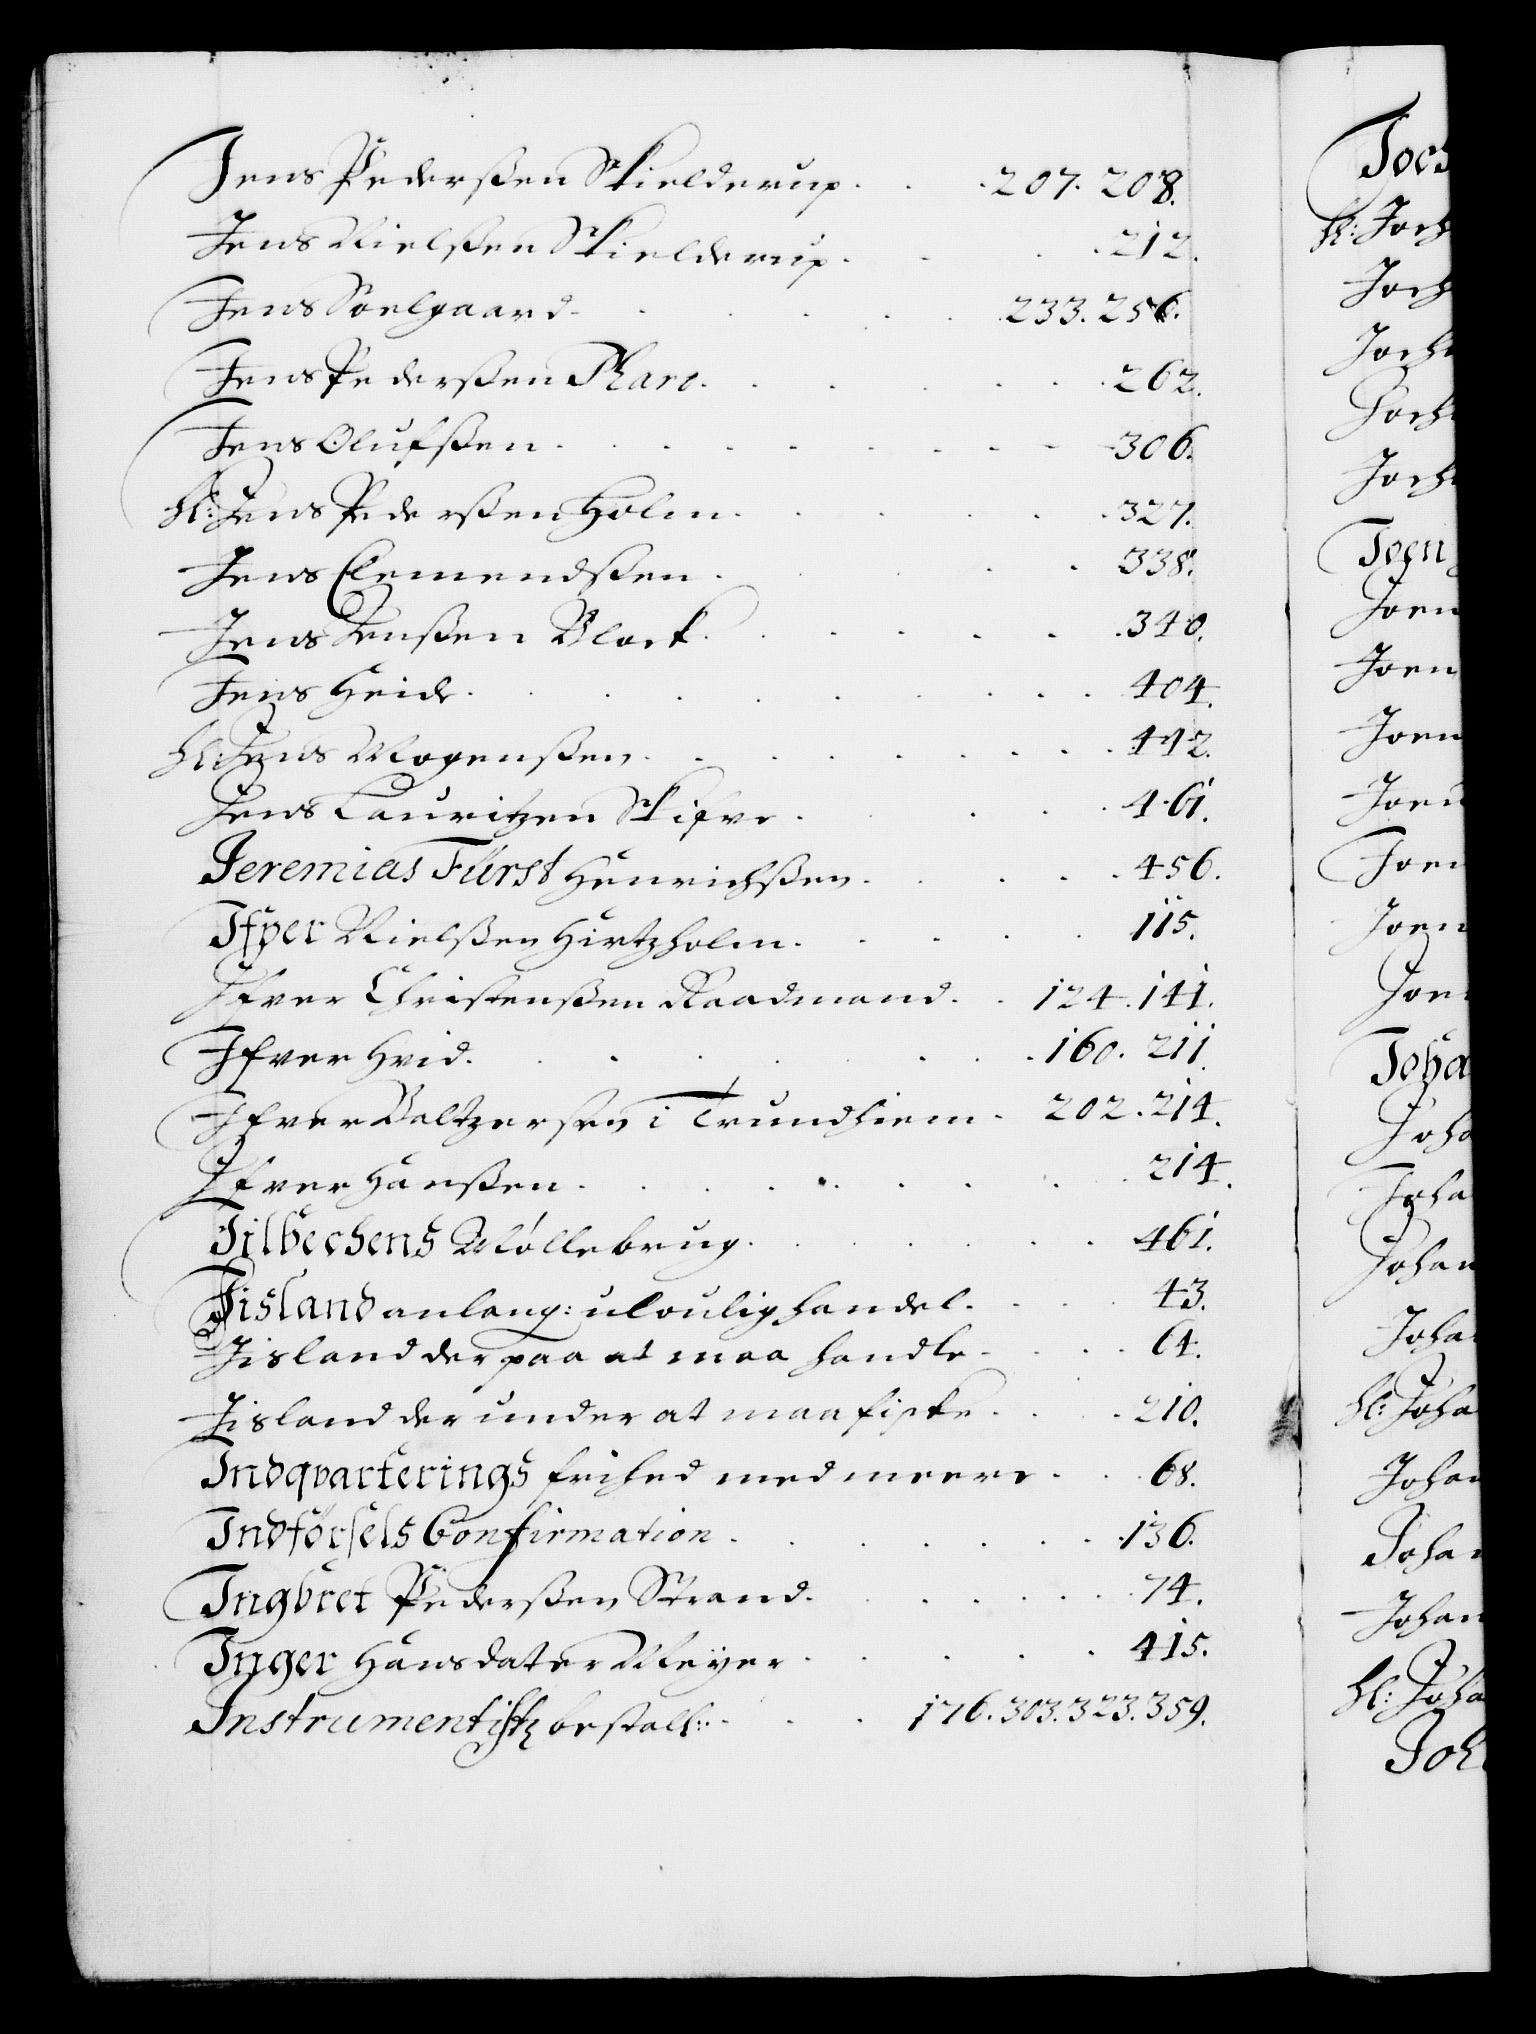 Jens Pederßen Skielderup. . .207. 208.
Jens Nielßen Skielderup. . . .212.
Jens Soelgaard. . . . . . .233.256.
Jens Pederßen Pharo. . . . . . .262.
Jens Olufßen. . . . . . . . .306.
Hl: Jens Pederßen Holm. . . . . . .327.
Jens Clemendßen. . . . . 338.
Jens Jenßen Block. . . . . . .340.
Jens Heide. . . . . . . . . 404.
Hl: Jens Mogenßen. . . . . . . . .442.
Jens Lauritzen Skifve. . . . .461.
Jeremias Fürst Henrichßen. . . . .456.
Ifver Nielßen Hirtzholm. . . . . 115.
Ifver Christenßen Raadmand. . 124.141.
Ifver Hvid. . . . . . . .160. 211.
Ifver Baltzersen i Trundhiem. 202.214.
Ifver Hanßen. . . . . . . . .214.
Jilbechens Möllebrug. . . . . . .461.
Jisland anlang: uloulig handel. . . . 43.
Jisland der paa at maa handle. . . . 64.
Jisland der under at maa fiske. . . .210.
Indqvarterings frihed med meere. . .68.
Indförsels Confirmation. . . . . . .136.
Ingbret Pederßen Strand. . . . . . .74.
Inger Hansdater Meÿer. . . . . 415.
Instrumentistz bestall:. . . .176.303.323.359.
Joch
Hl: Joch
Joch
Joch
Joch
Joch
Joen
Joen
Joen
Joen
Joen
Joen
Joen
Joen
Joha
Joha
Joha
Johan
Joha
Hl: Joha
Johan
Johan
Johan
Hl: Joha
Joh